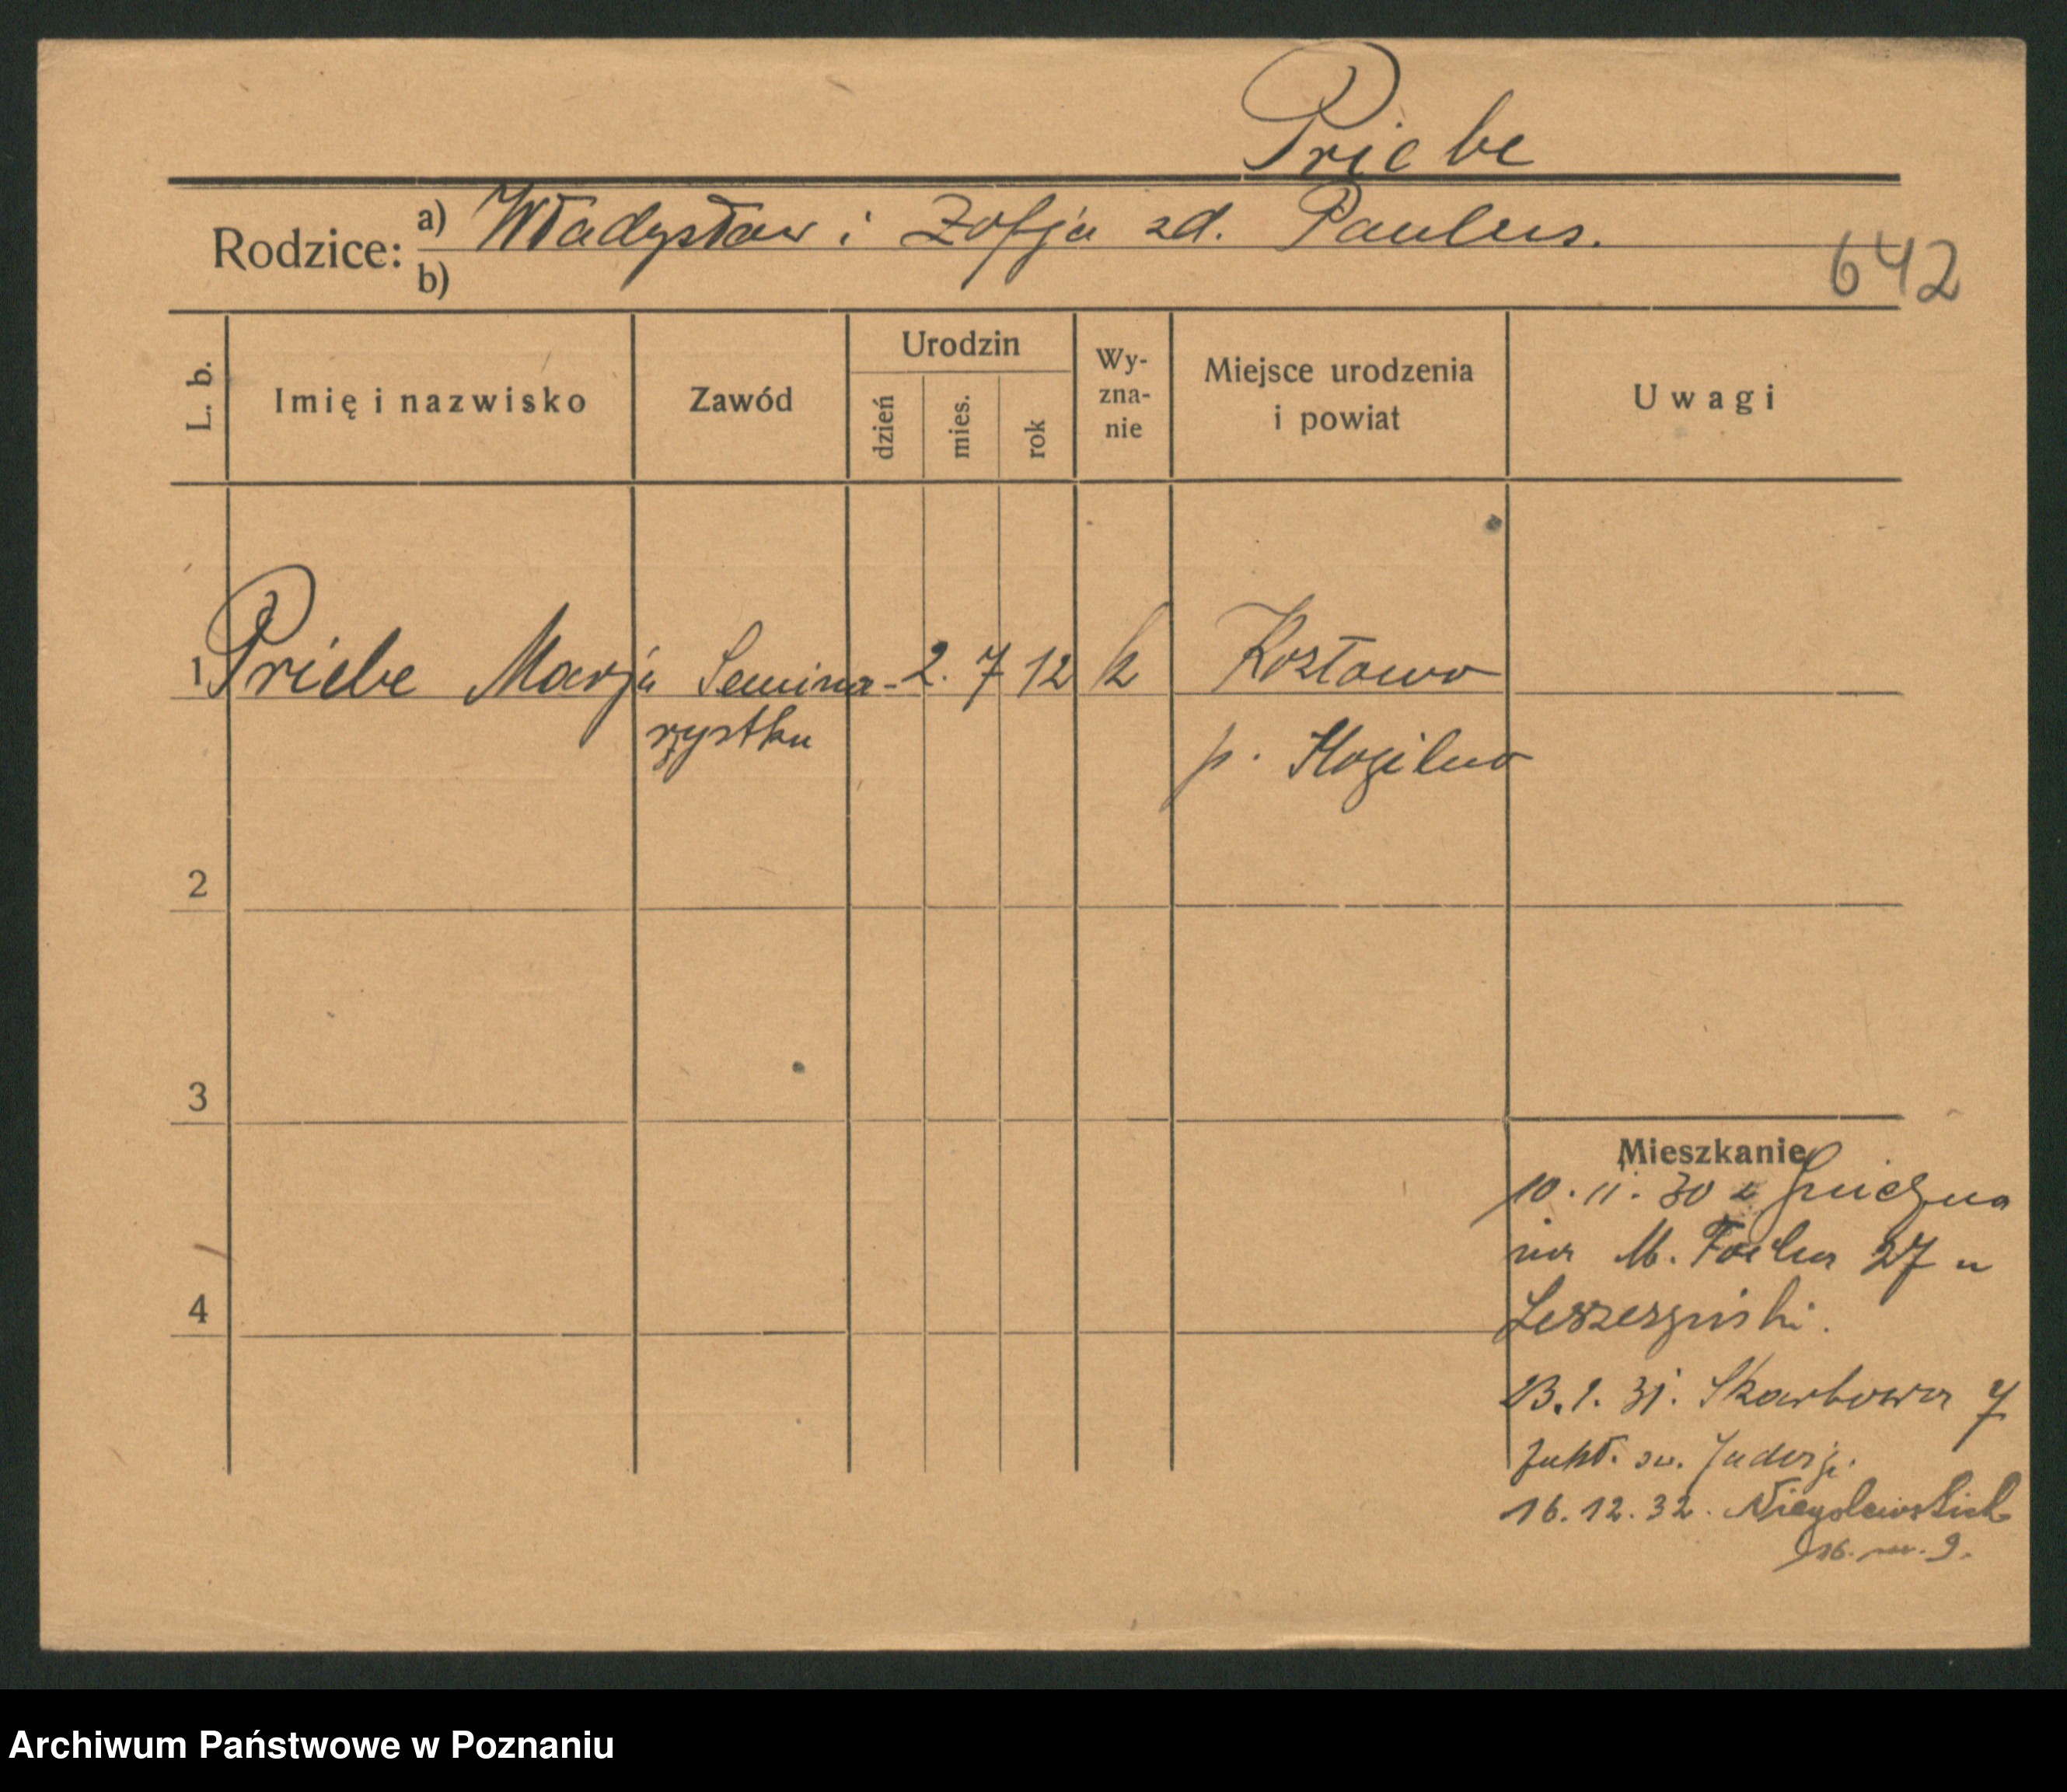 Priebe
Rodzice: a) Władysław i Zofja zd. Paulus.
b)
642
L. b.
Imię i nazwisko
Zawód
Urodzin
dzień
mies.
rok
Wy-
zna-
nie
Miejsce urodzenia
i powiat
Uwagi
1 Priebe Marja Semina- 2. 7 12 k Kozłowo
rzystka p. Mogilno
2
3
4
Mieszkanie
10. 11. 30 z Gniezna
M. Focha 27 u
23. 1. 31. Skarbowa 7
Zakł. św. Jadwigi.
16. 12. 32. Niegolewskich
16. m. 9.
Archiwum Państwowe w Poznaniu